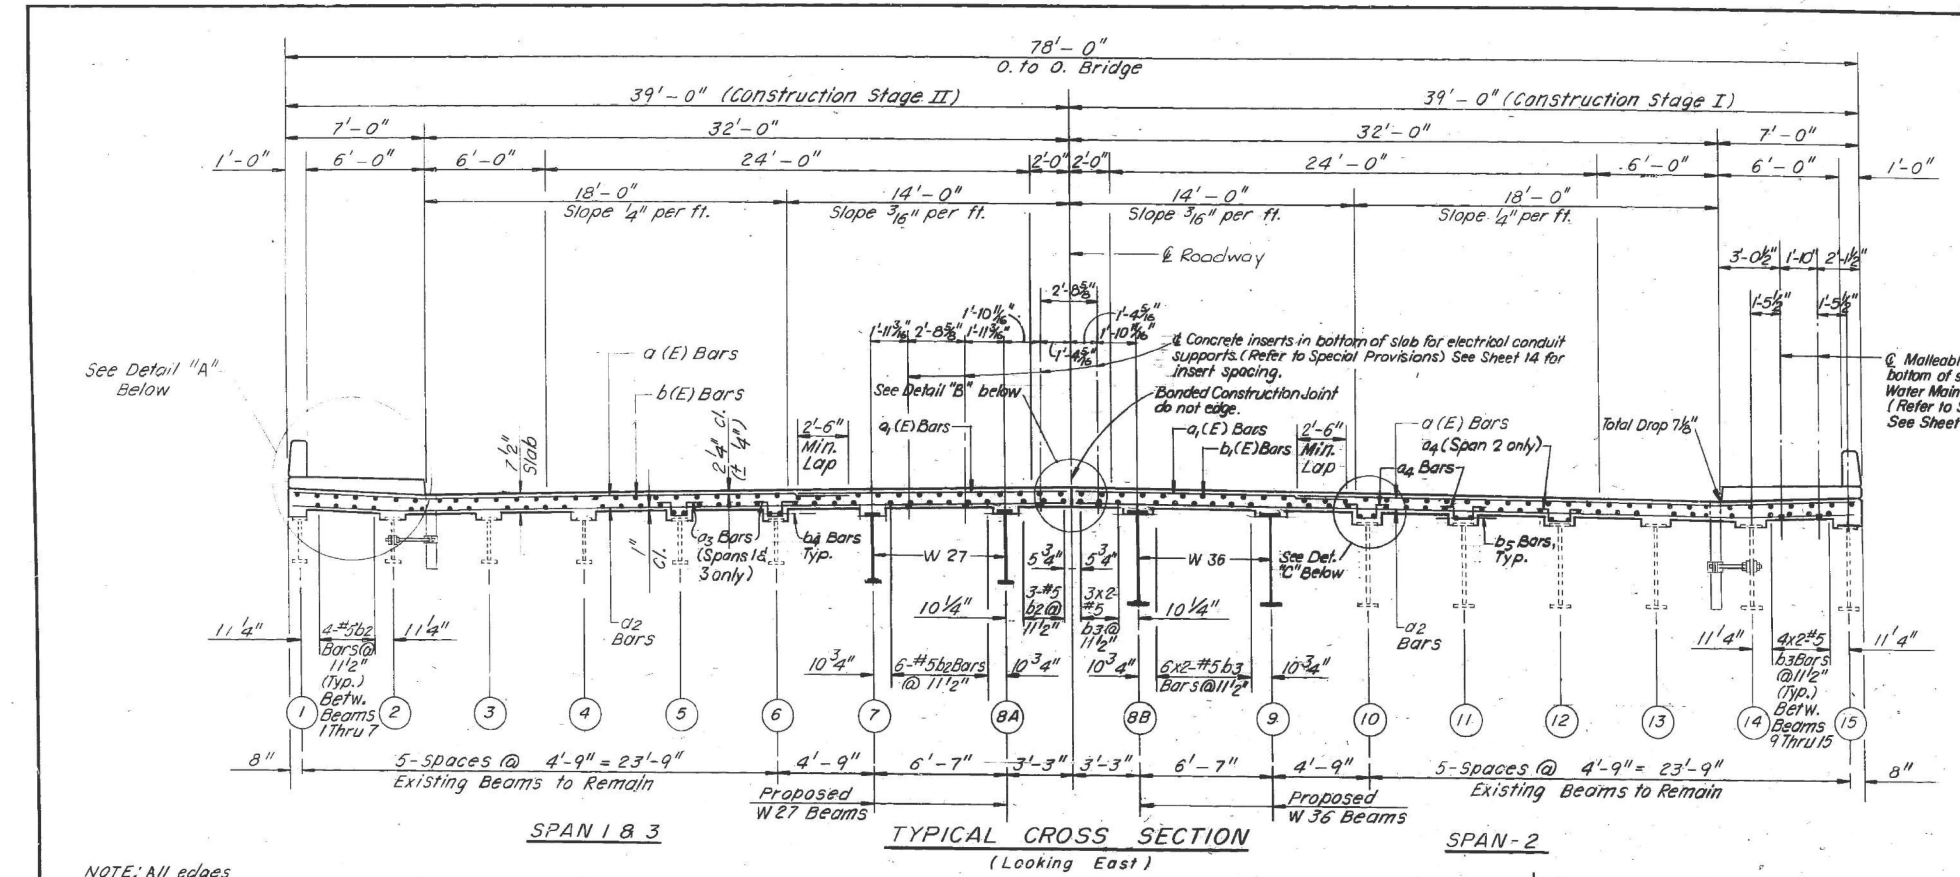 78'-0"
O. to O. Bridge
39'-0" (Construction Stage II)
39'-0" (Construction Stage I)
7'-0"
32'-0"
32'-0"
7'-0"
1'-0"
6'-0"
6'-0"
24'-0"
2'-0"
2'-0"
24'-0"
6'-0"
6'-0"
1'-0"
18'-0"
Slope 1/4" per ft.
14'-0"
Slope 3/16" per ft.
14'-0"
Slope 3/16" per ft.
18'-0"
Slope 1/4" per ft.
℄ Roadway
3'-0 1/2"
1'-10"
2'-1 1/2"
1'-5 1/2"
1'-5 1/2"
2'-8 5/8"
1'-10 11/16"
1'-4 5/16"
1'-11 3/16"
2'-8 5/8"
1'-11 3/16"
1'-10 11/16"
1'-4 5/16"
℄ Concrete inserts in bottom of slab for electrical conduit
supports. (Refer to Special Provisions) See Sheet 14 for
insert spacing.
℄ Malleabl
bottom of s
Water Main
(Refer to S
See Sheet
See Detail "A"
Below
a (E) Bars
b(E) Bars
See Detail "B" below
Bonded Construction Joint
do not edge.
7 1/2"
Slab
2 1/4" cl.
(± 1/4")
2'-6"
Min.
Lap
a1(E) Bars
a1(E) Bars
b1(E) Bars
2'-6"
Min.
Lap
a (E) Bars
a4 (Span 2 only)
a4 Bars
Total Drop 7 1/8"
1"
Cl.
a3 Bars
(Spans 1 &
3 only)
b4 Bars
Typ.
W 27
5 3/4"
5 3/4"
W 36
See Det.
"C" Below
b5 Bars,
Typ.
a2
Bars
10 1/4"
3-#5
b2 @
11 1/2"
3x2-
#5
b3 @
11 1/2"
10 1/4"
a2
Bars
11 1/4"
4-#5 b2
Bars @
11 1/2"
(Typ.)
Betw.
Beams
1 Thru 7
11 1/4"
10 3/4"
6-#5 b2 Bars
@ 11 1/2"
10 3/4"
10 3/4"
6x2-#5 b3
Bars @ 11 1/2"
10 3/4"
11 1/4"
4x2-#5
b3 Bars
@ 11 1/2"
(Typ.)
Betw.
Beams
9 Thru 15
11 1/4"
1 2 3 4 5 6 7 8A 8B 9 10 11 12 13 14 15
8"
5-Spaces @ 4'-9" = 23'-9"
Existing Beams to Remain
4'-9"
6'-7"
3'-3"
3'-3"
6'-7"
4'-9"
5-Spaces @ 4'-9" = 23'-9"
Existing Beams to Remain
8"
Proposed
W 27 Beams
Proposed
W 36 Beams
SPAN 1 & 3
TYPICAL CROSS SECTION
(Looking East)
SPAN-2
NOTE: All edges